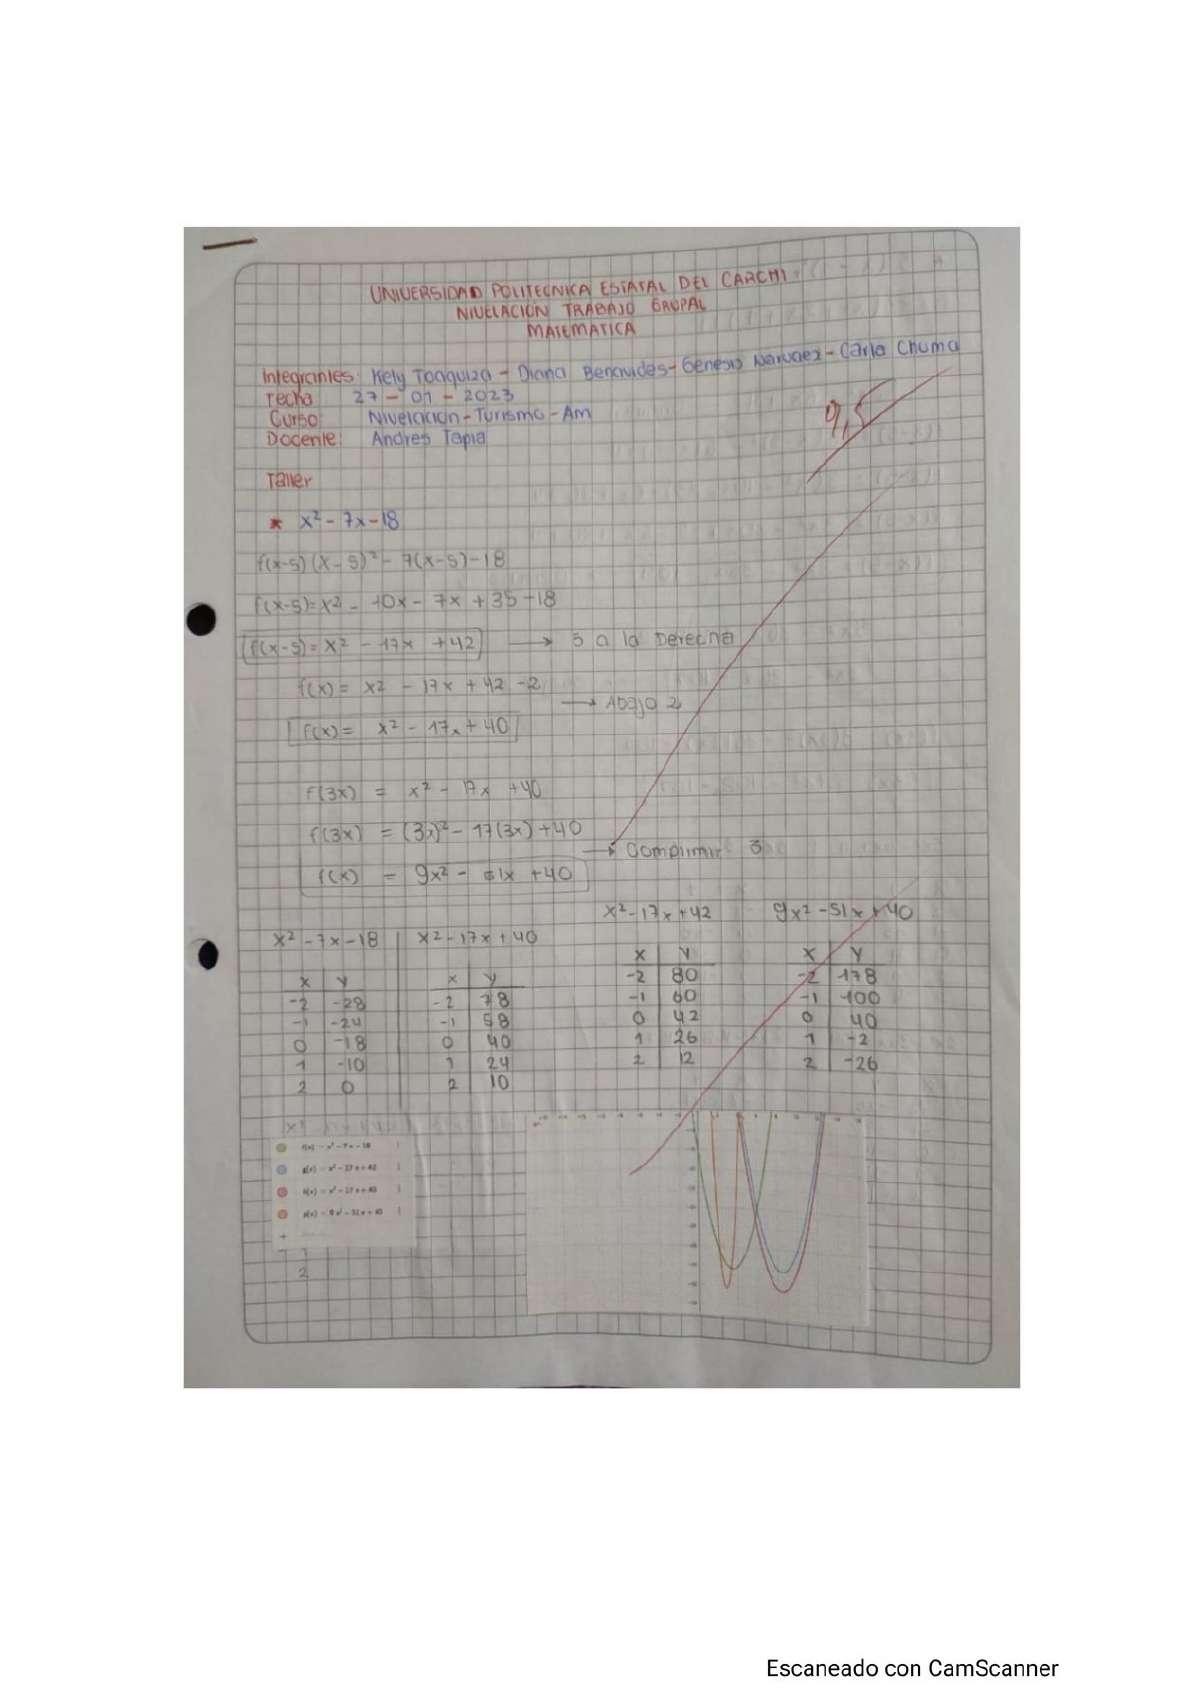 UNIVERSIDAD POLITECNICA ESTATAL DEL CARCHI
NIVELACIÓN TRABAJO GRUPAL
MATEMATICA
Integrantes: Kely Toaquiza - Diana Benavides - Genesis Narvaez - Carla Chuma
Fecha 27 - 01 - 2023
Curso: Nivelación - Turismo - Am
Docente: Andres Tapia
9,5
Taller
* x² - 7x - 18
f(x-5) (x - 5)² - 7(x-5) - 18
f(x-5) = x² - 10x - 7x + 35 - 18
f(x-5) = x² - 17x + 42 → 5 a la Derecha
f(x) = x² - 17x + 42 - 2
→ Abajo 2
f(x) = x² - 17x + 40
f(3x) = x² - 17x + 40
f(3x) = (3x)² - 17(3x) + 40
→ Comprimir 3
f(x) = 9x² - 51x + 40
x² - 17x + 42 9x² - 51x + 40
x² - 7x - 18 x² - 17x + 40
x y
-2 -28
-1 -24
0 -18
1 -10
2 0
x y
-2 78
-1 58
0 40
1 24
2 10
x y
-2 80
-1 60
0 42
1 26
2 12
x y
-2 178
-1 100
0 40
1 -2
2 -26
f(x) = x² - 7x - 18
g(x) = x² - 17x + 42
h(x) = x² - 17x + 40
p(x) = 9x² - 51x + 40
2
Escaneado con CamScanner